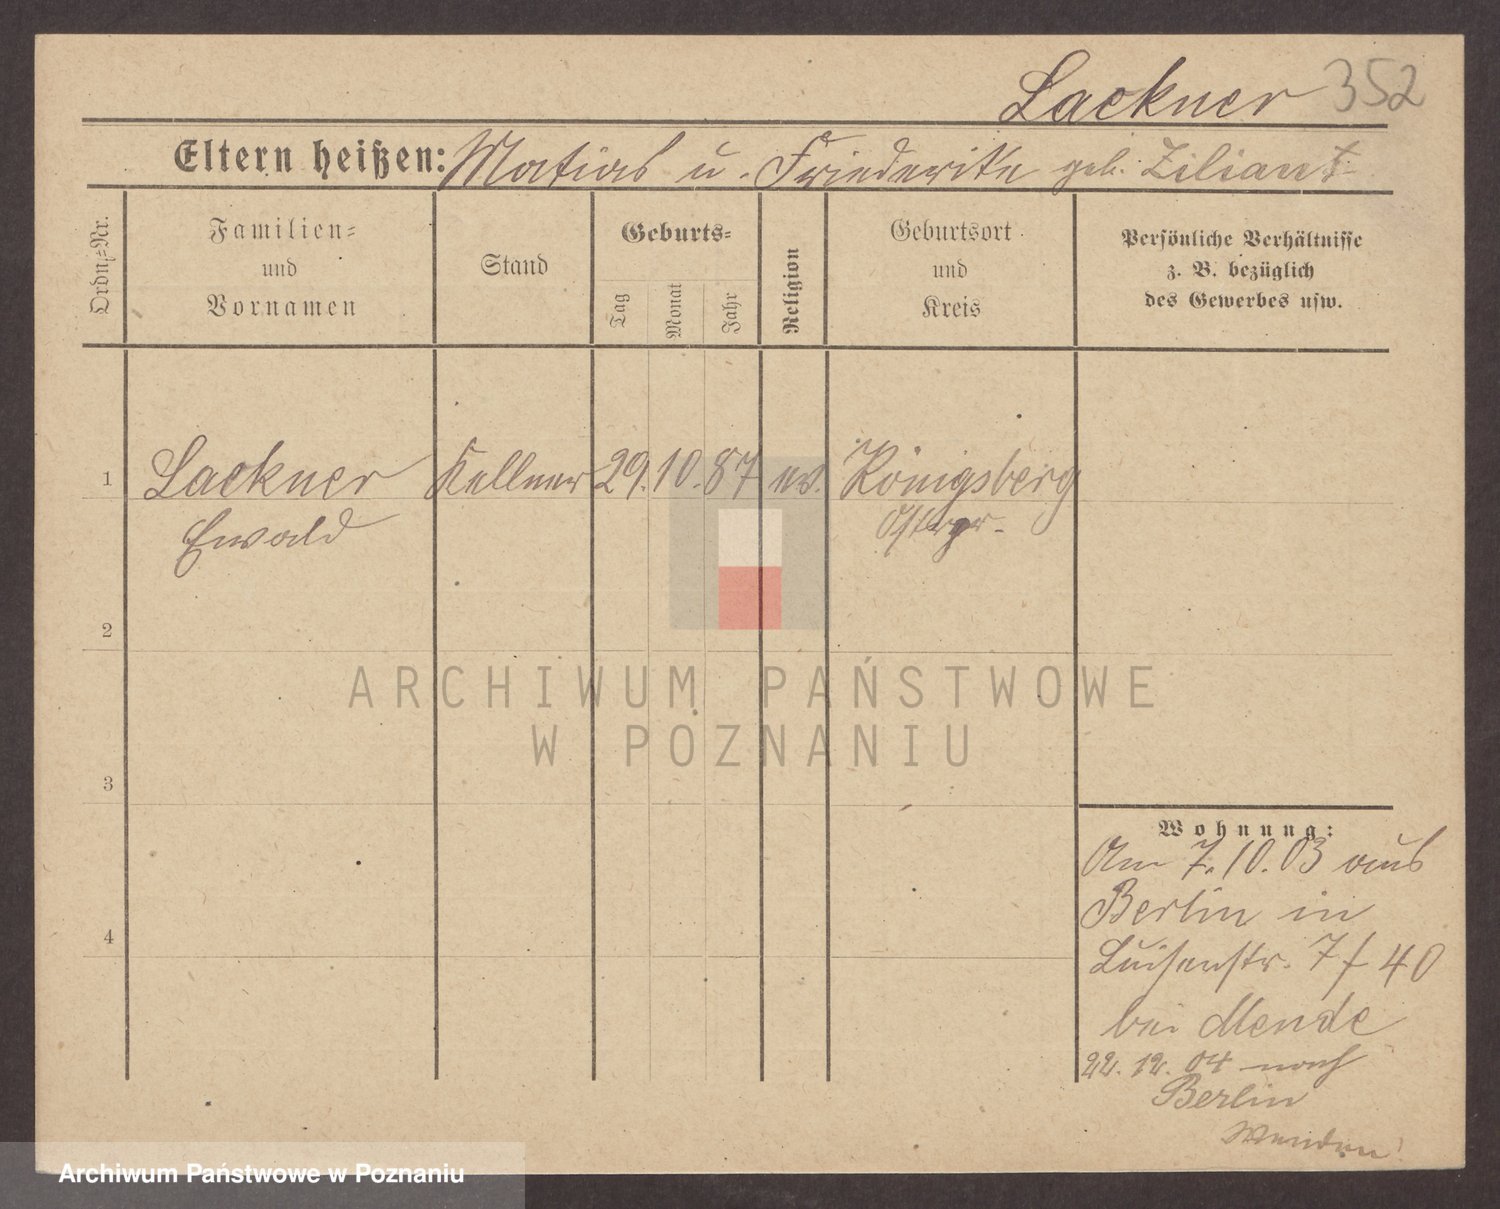 Lackner 352
Eltern heißen: Matias u. Friederike geb. Ziliant
Ordn.=Nr.
Familien=
und
Vornamen
Stand
Geburts=
Tag
Monat
Jahr
Religion
Geburtsort
und
Kreis
Persönliche Verhältnisse
z. B. bezüglich
des Gewerbes usw.
1 Lackner Kellner 29. 10. 87 ev. Königsberg
Ewald Ostpr.
2
3
4
Wohnung:
Am 7. 10. 03 aus
Berlin in
Luisenstr. 7 f 40
bei Mende
22. 12. 04 nach
Berlin
Wenden!
ARCHIWUM PAŃSTWOWE
W POZNANIU
Archiwum Państwowe w Poznaniu